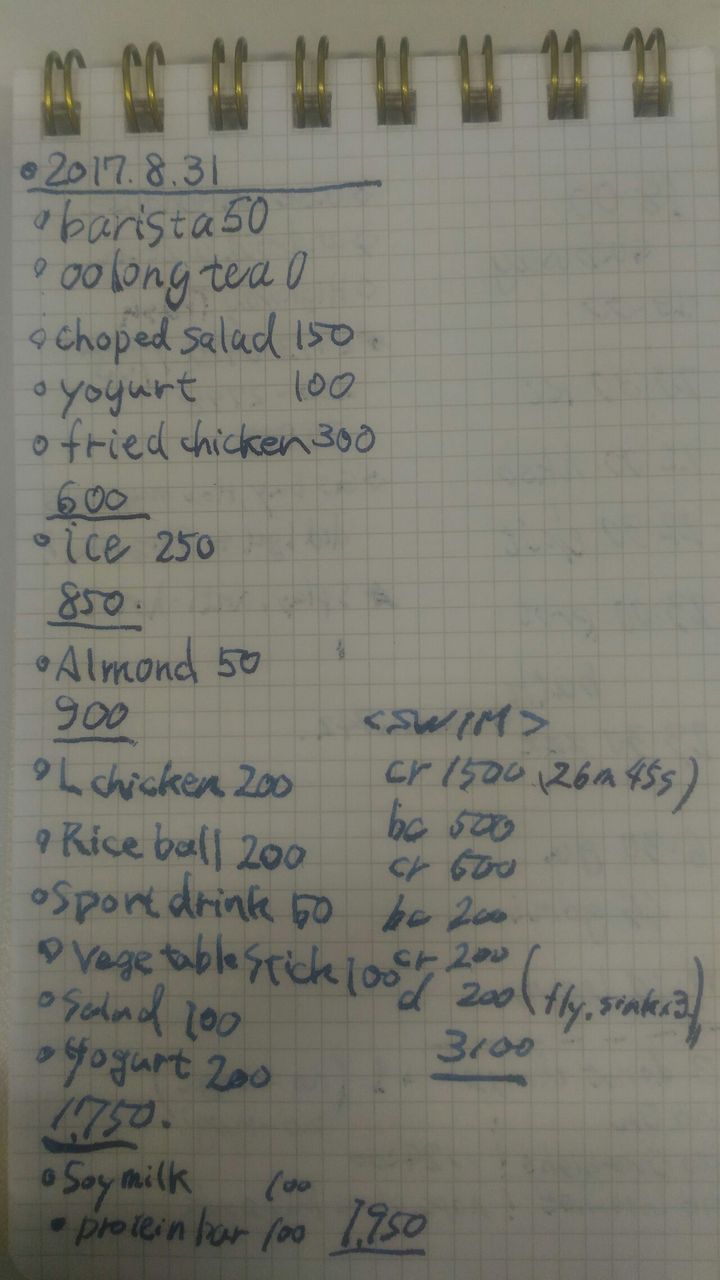 2017.8.31
barista 50
oolong tea 0
choped salad 150
yogurt 100
fried chicken 300
600
ice 250
850.
Almond 50
900
L chicken 200
Rice ball 200
Sport drink 50
Vegetable stick 100
Salad 100
Yogurt 200
1,750.
Soy milk 100
protein bar 100 1,950
<SWIM>
cr 1500 (26m 45s)
bc 500
cr 500
bc 200
cr 200
d 200 (fly, sink×3)
3100